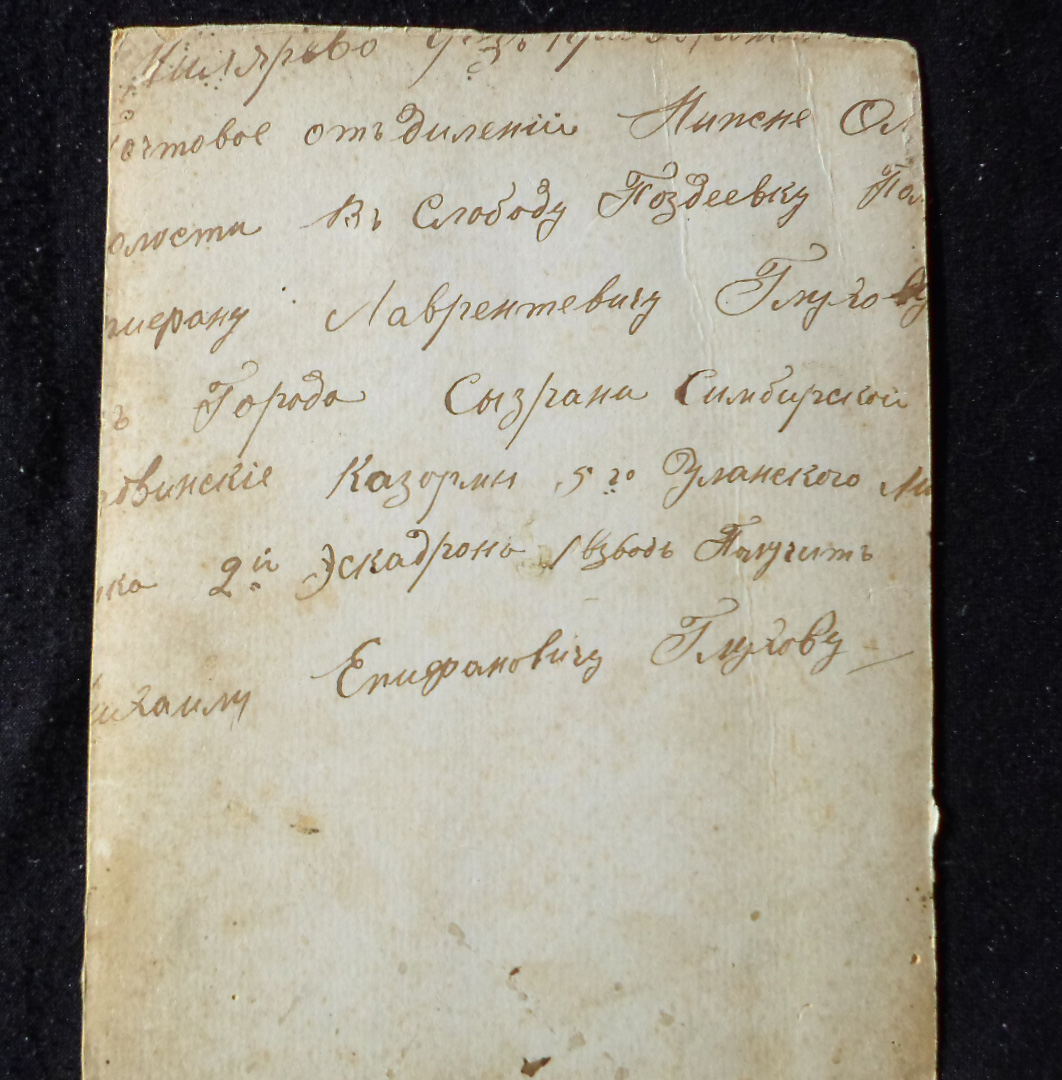 почтовое отъдиленiй Нижне Ол
олости Въ Слободу Поздеевку Пол
пиерану Лаврентевичу Глухову
ъ Города Сызрани Симбирской
овинскiе Казорми 5го Уланского
ка 2й Эскадрона 1 взводъ Палучитъ
ихаилу Епифановичу Глухову